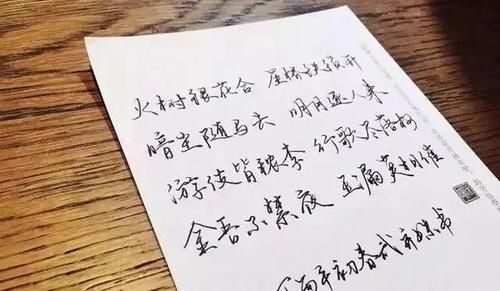 火树银花合 星桥铁锁开
暗尘随马去 明月逐人来
游伎皆秾李 行歌尽落梅
金吾不禁夜 玉漏莫相催
年初春试新笔书